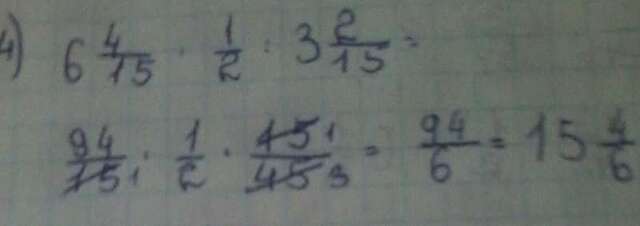 4) 6 4/15 · 1/2 : 3 2/15 =
94/15 1 · 1/2 · 15 1/45 3 = 94/6 = 15 4/6